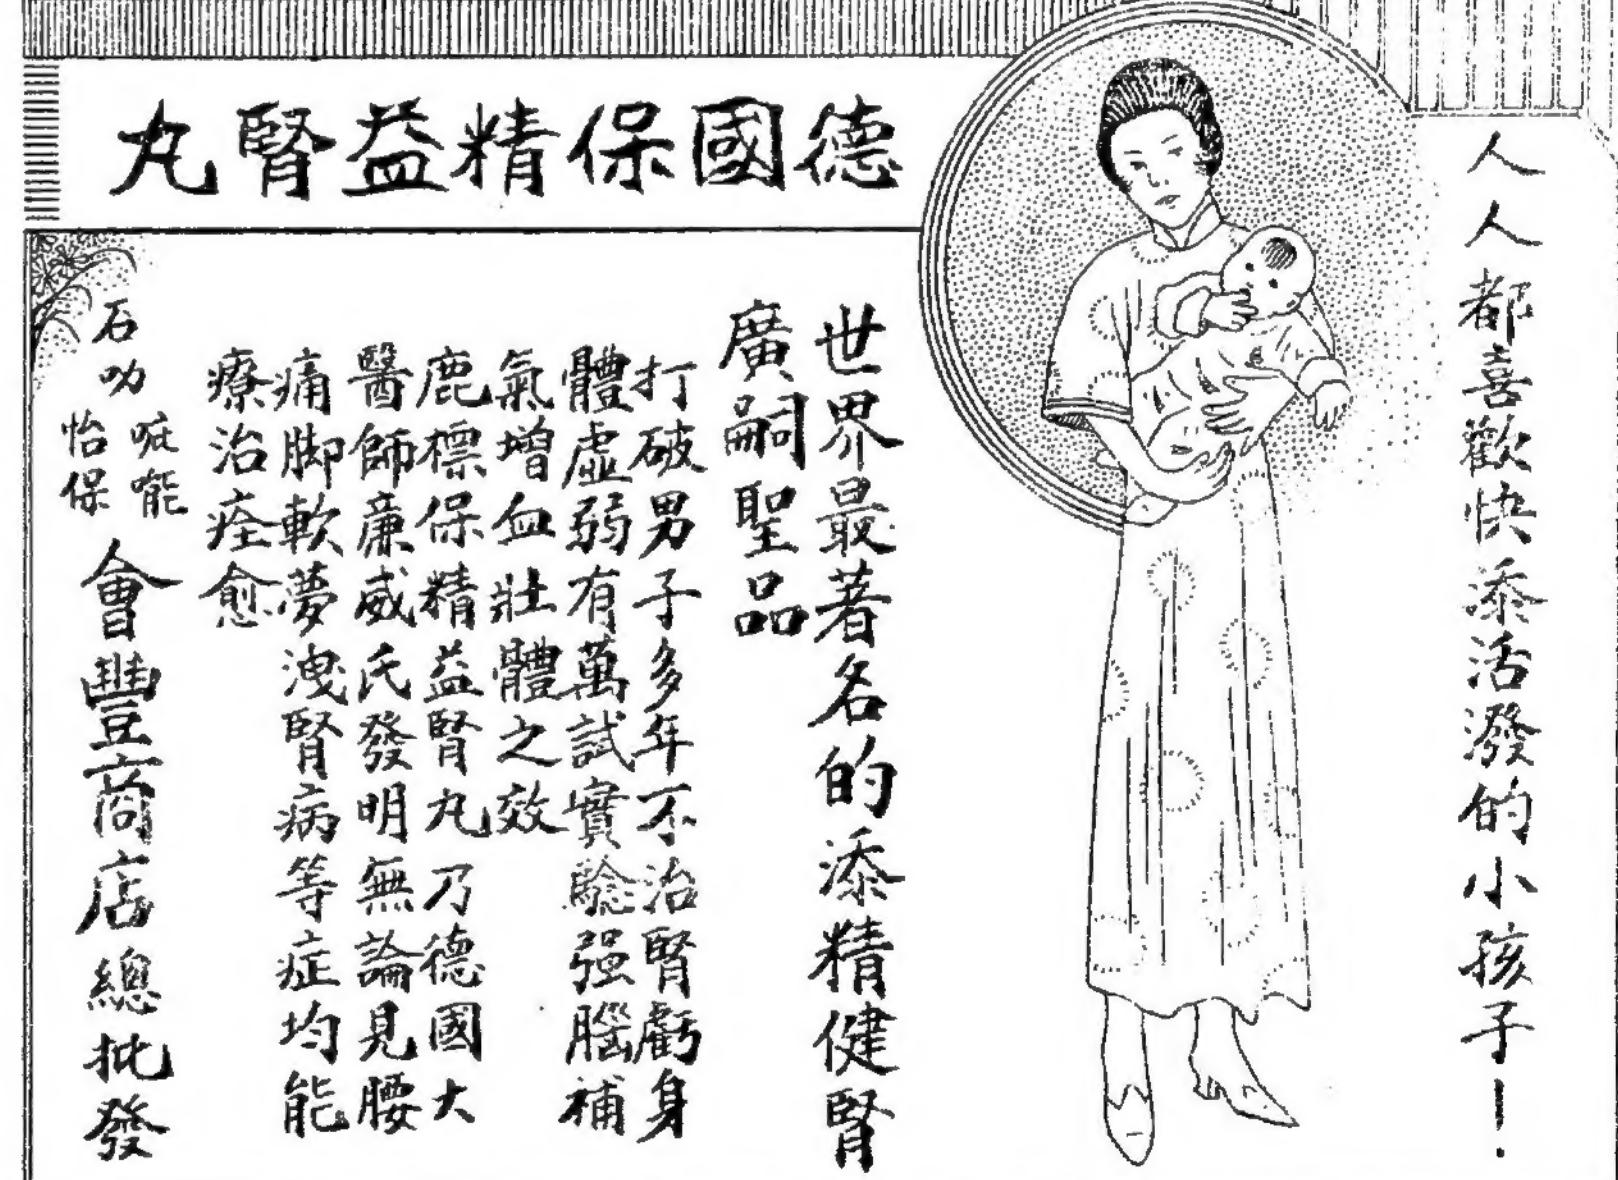 人人都喜歡快添活潑的小孩子！
德國保精益腎丸
世界最著名的添精健腎
廣嗣聖品
打破男子多年不治腎虧身
體虛弱有萬試實驗强腦補
氣增血壯體之效
鹿標保精益腎丸乃德國大
醫師廉威氏發明無論見腰
痛脚軟夢洩腎病等症均能
療治痊愈
石叻
吡嚨
怡保
會豐商店總批發